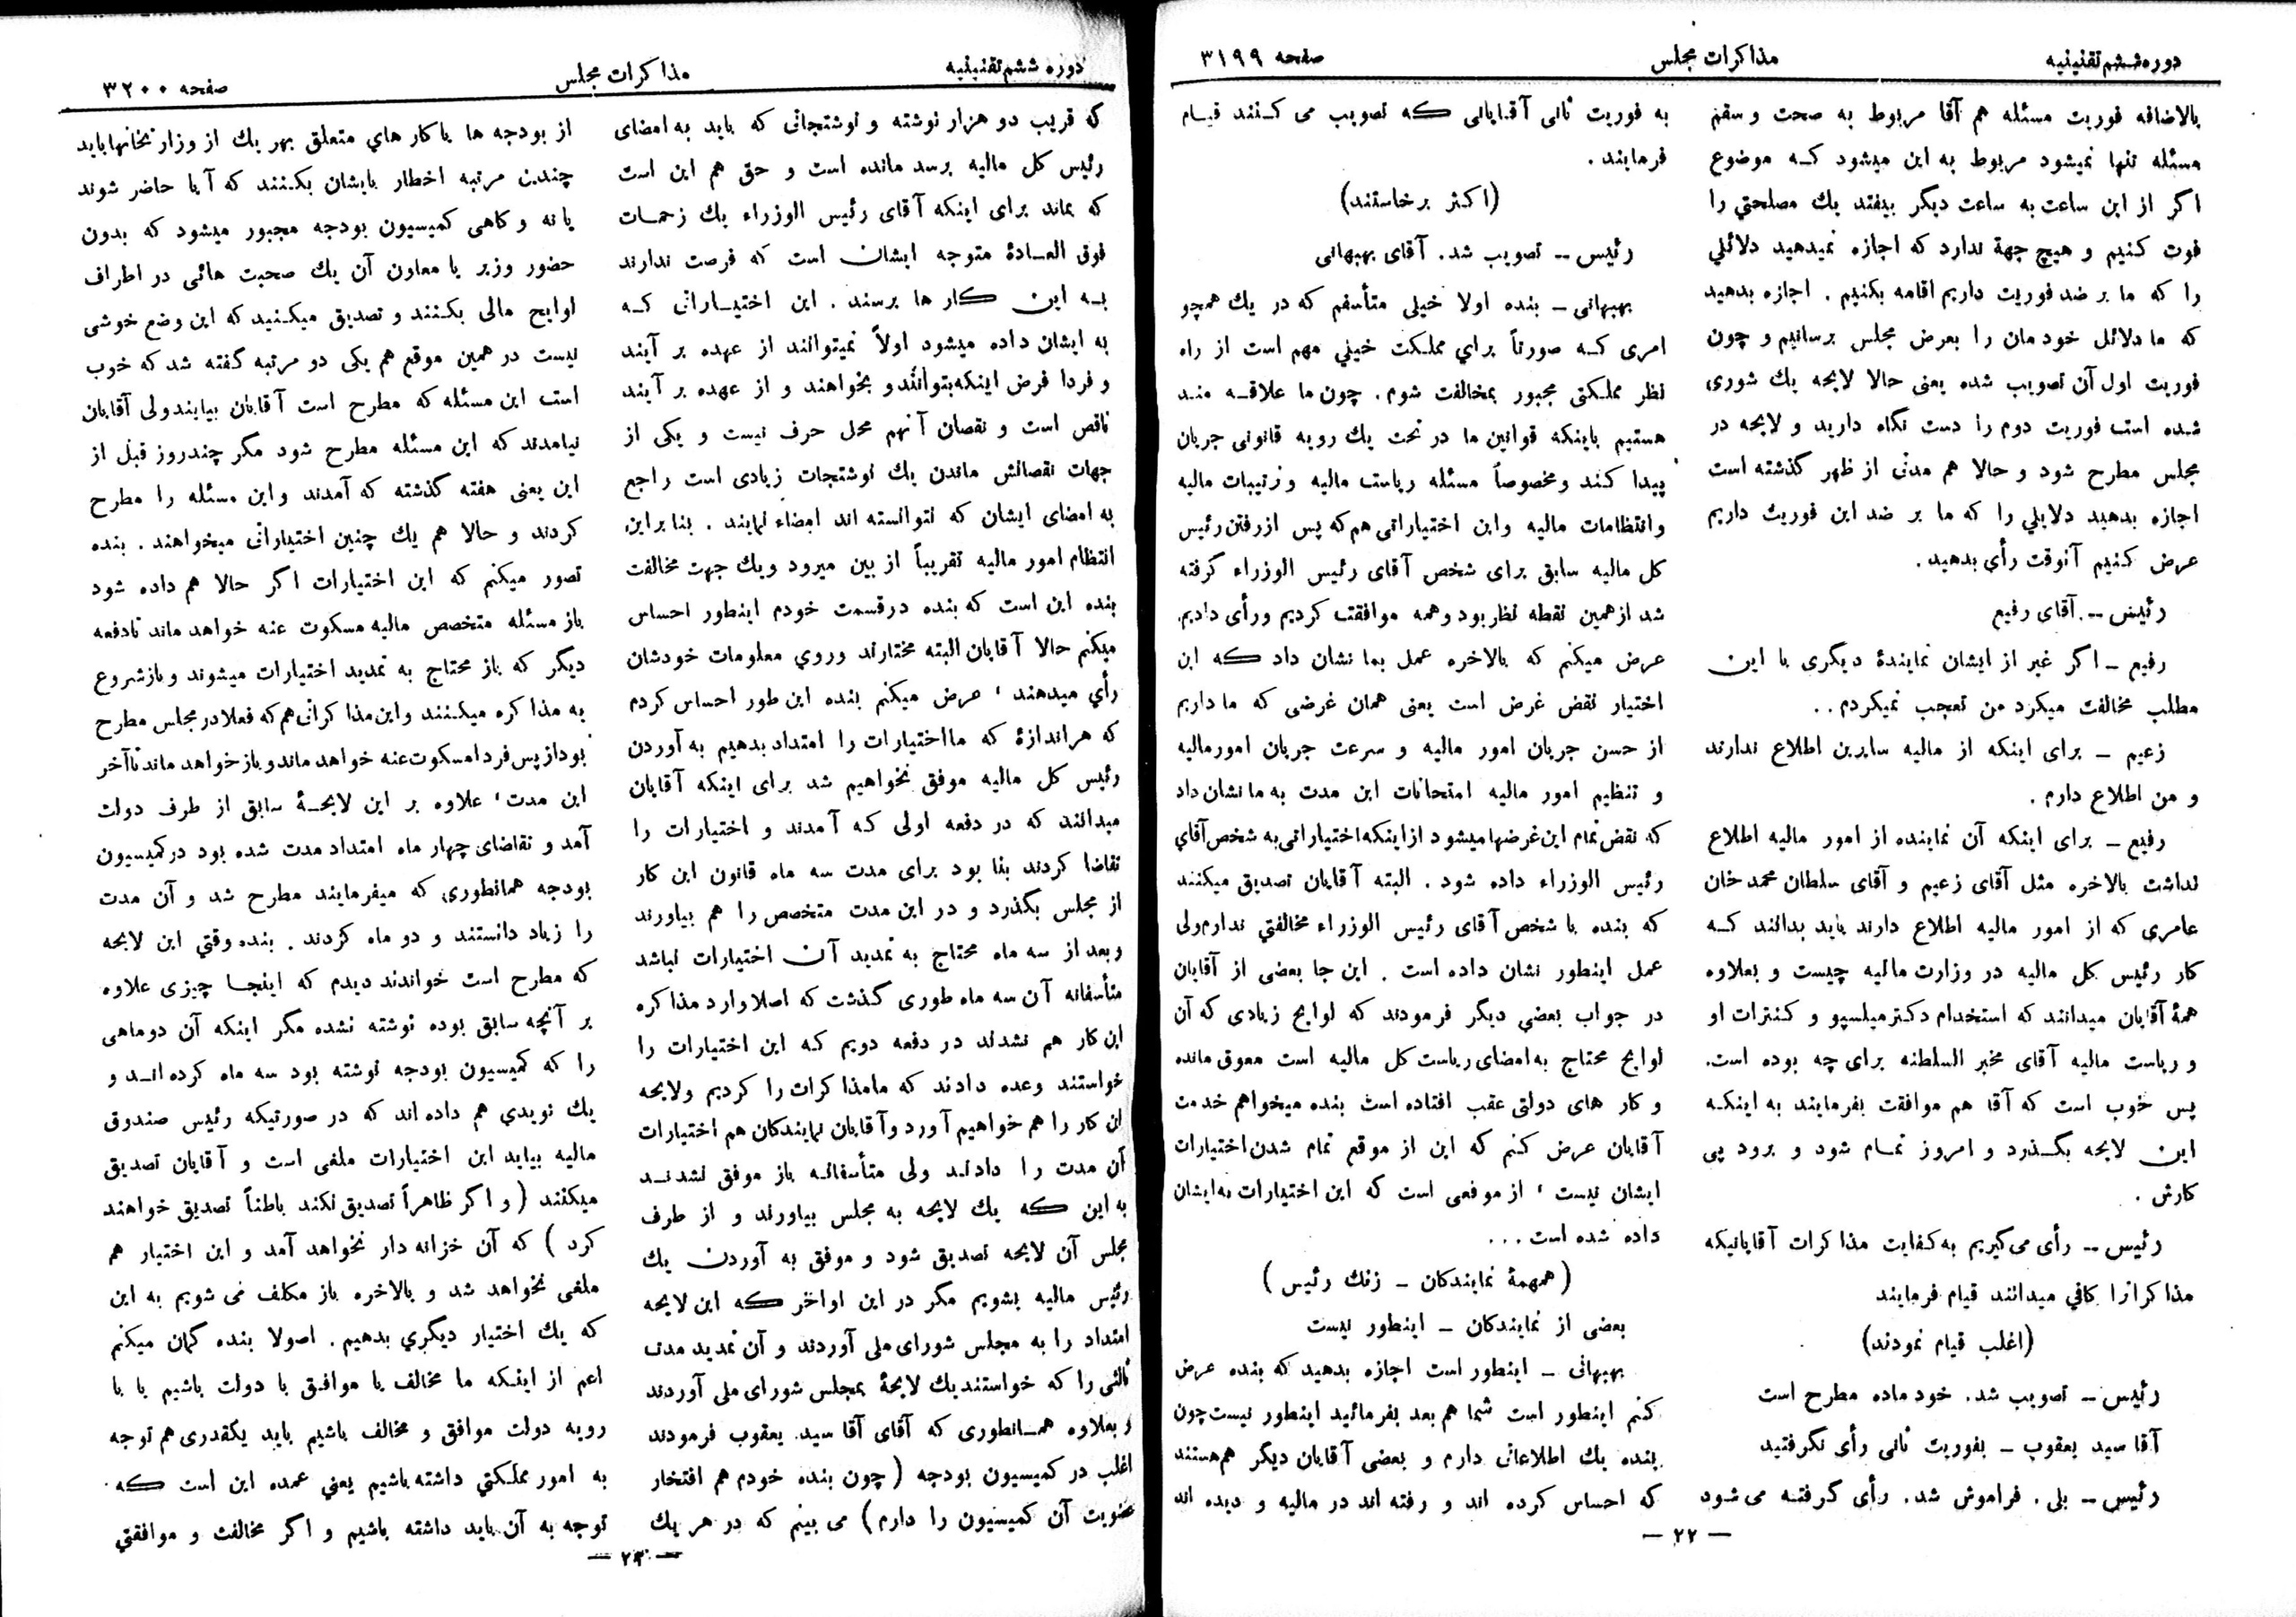 دوره ششم تقنینیه
مذاکرات مجلس
صفحه ۳۱۹۹
بالاضافه فوریت مسئله هم آقا مربوط به صحت و سقم
مسئله تنها نمیشود مربوط به این میشود که موضوع
اگر از این ساعت به ساعت دیگر بیفتد یك مصلحتي را
فوت کنیم و هیچ جهة ندارد که اجازه نمیدهید دلائلي
را که ما بر ضد فوریت داریم اقامه بکنیم . اجازه بدهید
که ما دلائل خودمان را بعرض مجلس برسانیم و چون
فوریت اول آن تصویب شده یعنی حالا لایحه یك شوری
شده است فوریت دوم را دست نگاه دارید و لایحه در
مجلس مطرح شود و حالا هم مدتی از ظهر گذشته است
اجازه بدهید دلایلي را که ما بر ضد این فوریت داریم
عرض کنیم آنوقت رأی بدهید .
رئیس -- آقای رفیع
رفیع - اگر غیر از ایشان نمایندهٔ دیگری با این
مطلب مخالفت میکرد من تعجب نمیکردم . .
زعیم - برای اینکه از مالیه سایرین اطلاع ندارند
و من اطلاع دارم .
رفیع - برای اینکه آن نماینده از امور مالیه اطلاع
نداشت بالاخره مثل آقای زعیم و آقای سلطان محمد خان
عامری که از امور مالیه اطلاع دارند باید بدانند که
کار رئیس کل مالیه در وزارت مالیه چیست و بعلاوه
همهٔ آقایان میدانند که استخدام دکتر میلسپو و کنترات او
و ریاست مالیه آقای مخبر السلطنه برای چه بوده است.
پس خوب است که آقا هم موافقت بفرمایند به اینکه
این لایحه بگذرد و امروز تمام شود و برود پی
کارش .
رئیس -- رأی می گیریم به کفایت مذاکرات آقایانیکه
مذاکرات را کافي میدانند قیام فرمایند
(اغلب قیام نمودند)
رئیس - تصویب شد. خود ماده مطرح است
آقا سید یعقوب - بفوریت ثانی رأی نگرفتید
رئیس -- بلی . فراموش شد. رأی گرفته می شود
به فوریت ثانی آقایانی که تصویب می کنند قیام
فرمایند .
(اکثر برخاستند)
رئیس -- تصویب شد. آقای بهبهانی
بهبهانی - بنده اولا خیلی متأسفم که در یك همچو
امری که صورتاً براي مملکت خیلي مهم است از راه
نظر مملکتی مجبور بمخالفت شوم. چون ما علاقه مند
هستیم باینکه قوانین ما در تحت یك رویه قانونی جریان
پیدا کند و مخصوصاً مسئله ریاست مالیه و ترتیبات مالیه
و انتظامات مالیه و این اختیاراتی هم که پس از رفتن رئیس
کل مالیه سابق برای شخص آقای رئیس الوزراء گرفته
شد از همین نقطه نظر بود و همه موافقت کردیم و رأی دادیم.
عرض میکنم که بالاخره عمل بما نشان داد که این
اختیار نقض غرض است یعنی همان غرضی که ما داریم
از حسن جریان امور مالیه و سرعت جریان امور مالیه
و تنظیم امور مالیه امتحانات این مدت به ما نشان داد
که نقض تمام این غرضها میشود از اینکه اختیاراتی به شخص آقاي
رئیس الوزراء داده شود . البته آقایان تصدیق میکنند
که بنده با شخص آقای رئیس الوزراء مخالفتي ندارم ولی
عمل اینطور نشان داده است . این جا بعضی از آقایان
در جواب بعضي دیگر فرمودند که لوایح زیادی که آن
لوایح محتاج به امضای ریاست کل مالیه است معوق مانده
و کار های دولتی عقب افتاده است بنده میخواهم خدمت
آقایان عرض کنم که این از موقع تمام شدن اختیارات
ایشان نیست ، از موقعی است که این اختیارات به ایشان
داده شده است . . .
(همهمهٔ نمایندکان - زنك رئیس )
بعضی از نمایندکان - اینطور نیست
بهبهانی - اینطور است اجازه بدهید که بنده عرض
کنم اینطور است شما هم بعد بفرمائید اینطور نیست چون
بنده یك اطلاعاتی دارم و بعضی آقایان دیگر هم هستند
که احساس کرده اند و رفته اند در مالیه و دیده اند
— ۲۲ —
دوره ششم تقنینیه
مذاکرات مجلس
صفحه ۳۲۰۰
که قریب دو هزار نوشته و نوشتجاتی که باید به امضای
رئیس کل مالیه برسد مانده است و حق هم این است
که بماند برای اینکه آقای رئیس الوزراء یك زحمات
فوق العادهٔ متوجه ایشان است که فرصت ندارند
به این کار ها برسند . این اختیاراتی که
به ایشان داده میشود اولاً نمیتوانند از عهده بر آیند
و فردا فرض اینکه بتوانند و بخواهند و از عهده بر آیند
ناقص است و نقصان آنهم محل حرف نیست و یکی از
جهات نقصانش ماندن یك نوشتجات زیادی است راجع
به امضای ایشان که نتوانسته اند امضاء نمایند . بنا براین
انتظام امور مالیه تقریباً از بین میرود و یك جهت مخالفت
بنده این است که بنده در قسمت خودم اینطور احساس
میکنم حالا آقایان البته مختارند و روي معلومات خودشان
رأي میدهند ، عرض میکنم بنده این طور احساس کردم
که هر اندازهٔ که ما اختیارات را امتداد بدهیم به آوردن
رئیس کل مالیه موفق نخواهیم شد برای اینکه آقایان
میدانند که در دفعه اولی که آمدند و اختیارات را
تقاضا کردند بنا بود برای مدت سه ماه قانون این کار
از مجلس بگذرد و در این مدت متخصص را هم بیاورند
و بعد از سه ماه محتاج به تمدید آن اختیارات نباشد
متأسفانه آن سه ماه طوری گذشت که اصلا وارد مذاکره
این کار هم نشدند در دفعه دویم که این اختیارات را
خواستند وعده دادند که ما مذاکرات را کردیم و لایحه
این کار را هم خواهیم آورد و آقایان نمایندکان هم اختیارات
آن مدت را دادند ولی متأسفانه باز موفق نشدند
به این که یك لایحه به مجلس بیاورند و از طرف
مجلس آن لایحه تصدیق شود و موفق به آوردن یك
رئیس مالیه بشویم مگر در این اواخر که این لایحه
امتداد را به مجلس شورای ملی آوردند و آن تمدید مدت
ثالثی را که خواستند یك لایحهٔ بمجلس شورای ملی آوردند
و بعلاوه همانطوری که آقای آقا سید یعقوب فرمودند
اغلب در کمیسیون بودجه (چون بنده خودم هم افتخار
عضویت آن کمیسیون را دارم) می بینم که در هر یك
از بودجه ها یا کار هاي متعلق بهر یك از وزارتخانها باید
چندین مرتبه اخطار بایشان بکنند که آیا حاضر شوند
یا نه و کاهی کمیسیون بودجه مجبور میشود که بدون
حضور وزیر یا معاون آن یك صحبت هائی در اطراف
لوایح مالی بکنند و تصدیق میکنید که این وضع خوشی
نیست در همین موقع هم یکی دو مرتبه گفته شد که خوب
است این مسئله که مطرح است آقایان بیایند ولی آقایان
نیامدند که این مسئله مطرح شود مگر چند روز قبل از
این یعنی هفته گذشته که آمدند و این مسئله را مطرح
کردند و حالا هم یك چنین اختیاراتی میخواهند . بنده
تصور میکنم که این اختیارات اگر حالا هم داده شود
باز مسئله متخصص مالیه مسکوت عنه خواهد ماند تا دفعه
دیگر که باز محتاج به تمدید اختیارات میشوند و باز شروع
به مذاکره میکنند و این مذاکراتی هم که فعلا در مجلس مطرح
بود از پس فردا مسکوت عنه خواهد ماند و باز خواهد ماند تا آخر
این مدت ، علاوه بر این لایحهٔ سابق از طرف دولت
آمد و تقاضای چهار ماه امتداد مدت شده بود در کمیسیون
بودجه همانطوری که میفرمایند مطرح شد و آن مدت
را زیاد دانستند و دو ماه کردند . بنده وقتي این لایحه
که مطرح است خواندند دیدم که اینجا چیزی علاوه
بر آنچه سابق بوده نوشته نشده مگر اینکه آن دو ماهی
را که کمیسیون بودجه نوشته بود سه ماه کرده اند و
یك نویدي هم داده اند که در صورتیکه رئیس صندوق
مالیه بیاید این اختیارات ملغی است و آقایان تصدیق
میکنند (و اگر ظاهراً تصدیق نکند باطناً تصدیق خواهند
کرد ) که آن خزانه دار نخواهد آمد و این اختیار هم
ملغی نخواهد شد و بالاخره باز مکلف می شویم به این
که یك اختیار دیگري بدهیم . اصولا بنده گمان میکنم
اعم از اینکه ما مخالف یا موافق با دولت باشیم یا با
رویه دولت موافق و مخالف باشیم باید یکقدری هم توجه
به امور مملکتي داشته باشیم یعني عمده این است که
توجه به آن باید داشته باشیم و اگر مخالفت و موافقتي
— ۲۳ —